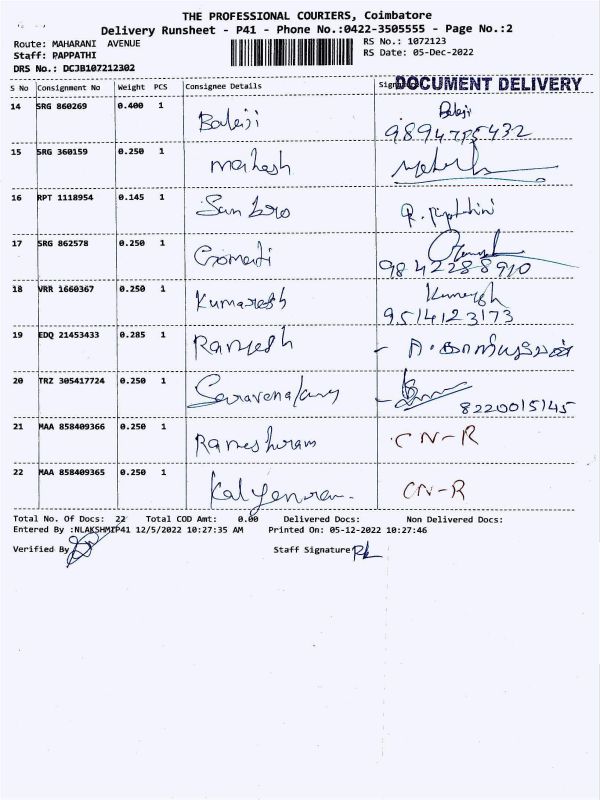 THE PROFESSIONAL COURIERS, Coimbatore
Delivery Runsheet - P41 - Phone No.:0422-3505555 - Page No.:2
Route: MAHARANI AVENUE RS No.: 1072123
Staff: PAPPATHI RS Date: 05-Dec-2022
DRS No.: DCJB107212302
S No Consignment No Weight PCS Consignee Details DOCUMENT DELIVERY
14 SRG 860269 0.400 1 Balaji Balaji
15 SRG 360159 0.250 1 Mahesh
16 RPT 1118954 0.145 1
17 SRG 862578 0.250 1 9842288910
18 VRR 1660367 0.250 1 Kumaresh
9514123173
19 EDQ 21453433 0.285 1 Ramesh
20 TRZ 305417724 0.250 1
8220015145
21 MAA 858409366 0.250 1 CN-R
22 MAA 858409365 0.250 1 CN-R
Total No. Of Docs: 22 Total COD Amt: 0.00 Delivered Docs: Non Delivered Docs:
Entered By :NLAKSHMIP41 12/5/2022 10:27:35 AM Printed On: 05-12-2022 10:27:46
Verified By Staff Signature